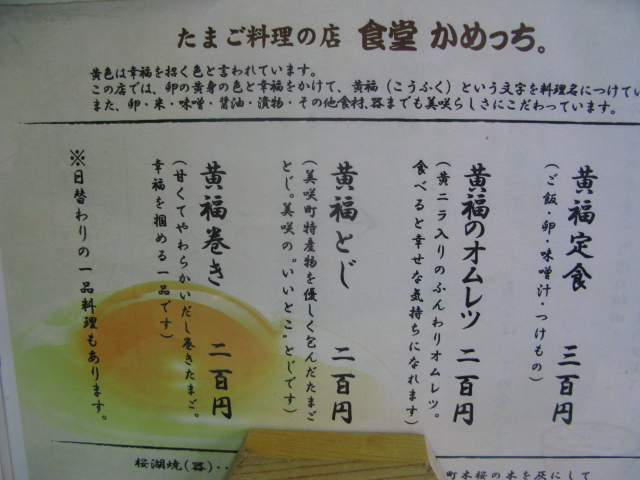 たまご料理の店 食堂 かめっち。
黄色は幸福を招く色と言われています。
この店では、卵の黄身の色と幸福をかけて、黄福（こうふく）という文字を料理名につけてい
また、卵・米・味噌・醤油・漬物・その他食材、器までも美咲らしさにこだわっています。
黄福定食 三百円
（ご飯・卵・味噌汁・つけもの）
黄福のオムレツ 二百円
（黄ニラ入りのふんわりオムレツ。
食べると幸せな気持ちになれます）
黄福とじ 二百円
（美咲町特産物を優しく包んだたまご
とじ。美咲の"いいとこ"とじです）
黄福巻き 二百円
（甘くてやわらかいだし巻きたまご。
幸福を掴める一品です）
※日替わりの一品料理もあります。
桜湖焼（器）‥
町木桜の木を灰にして